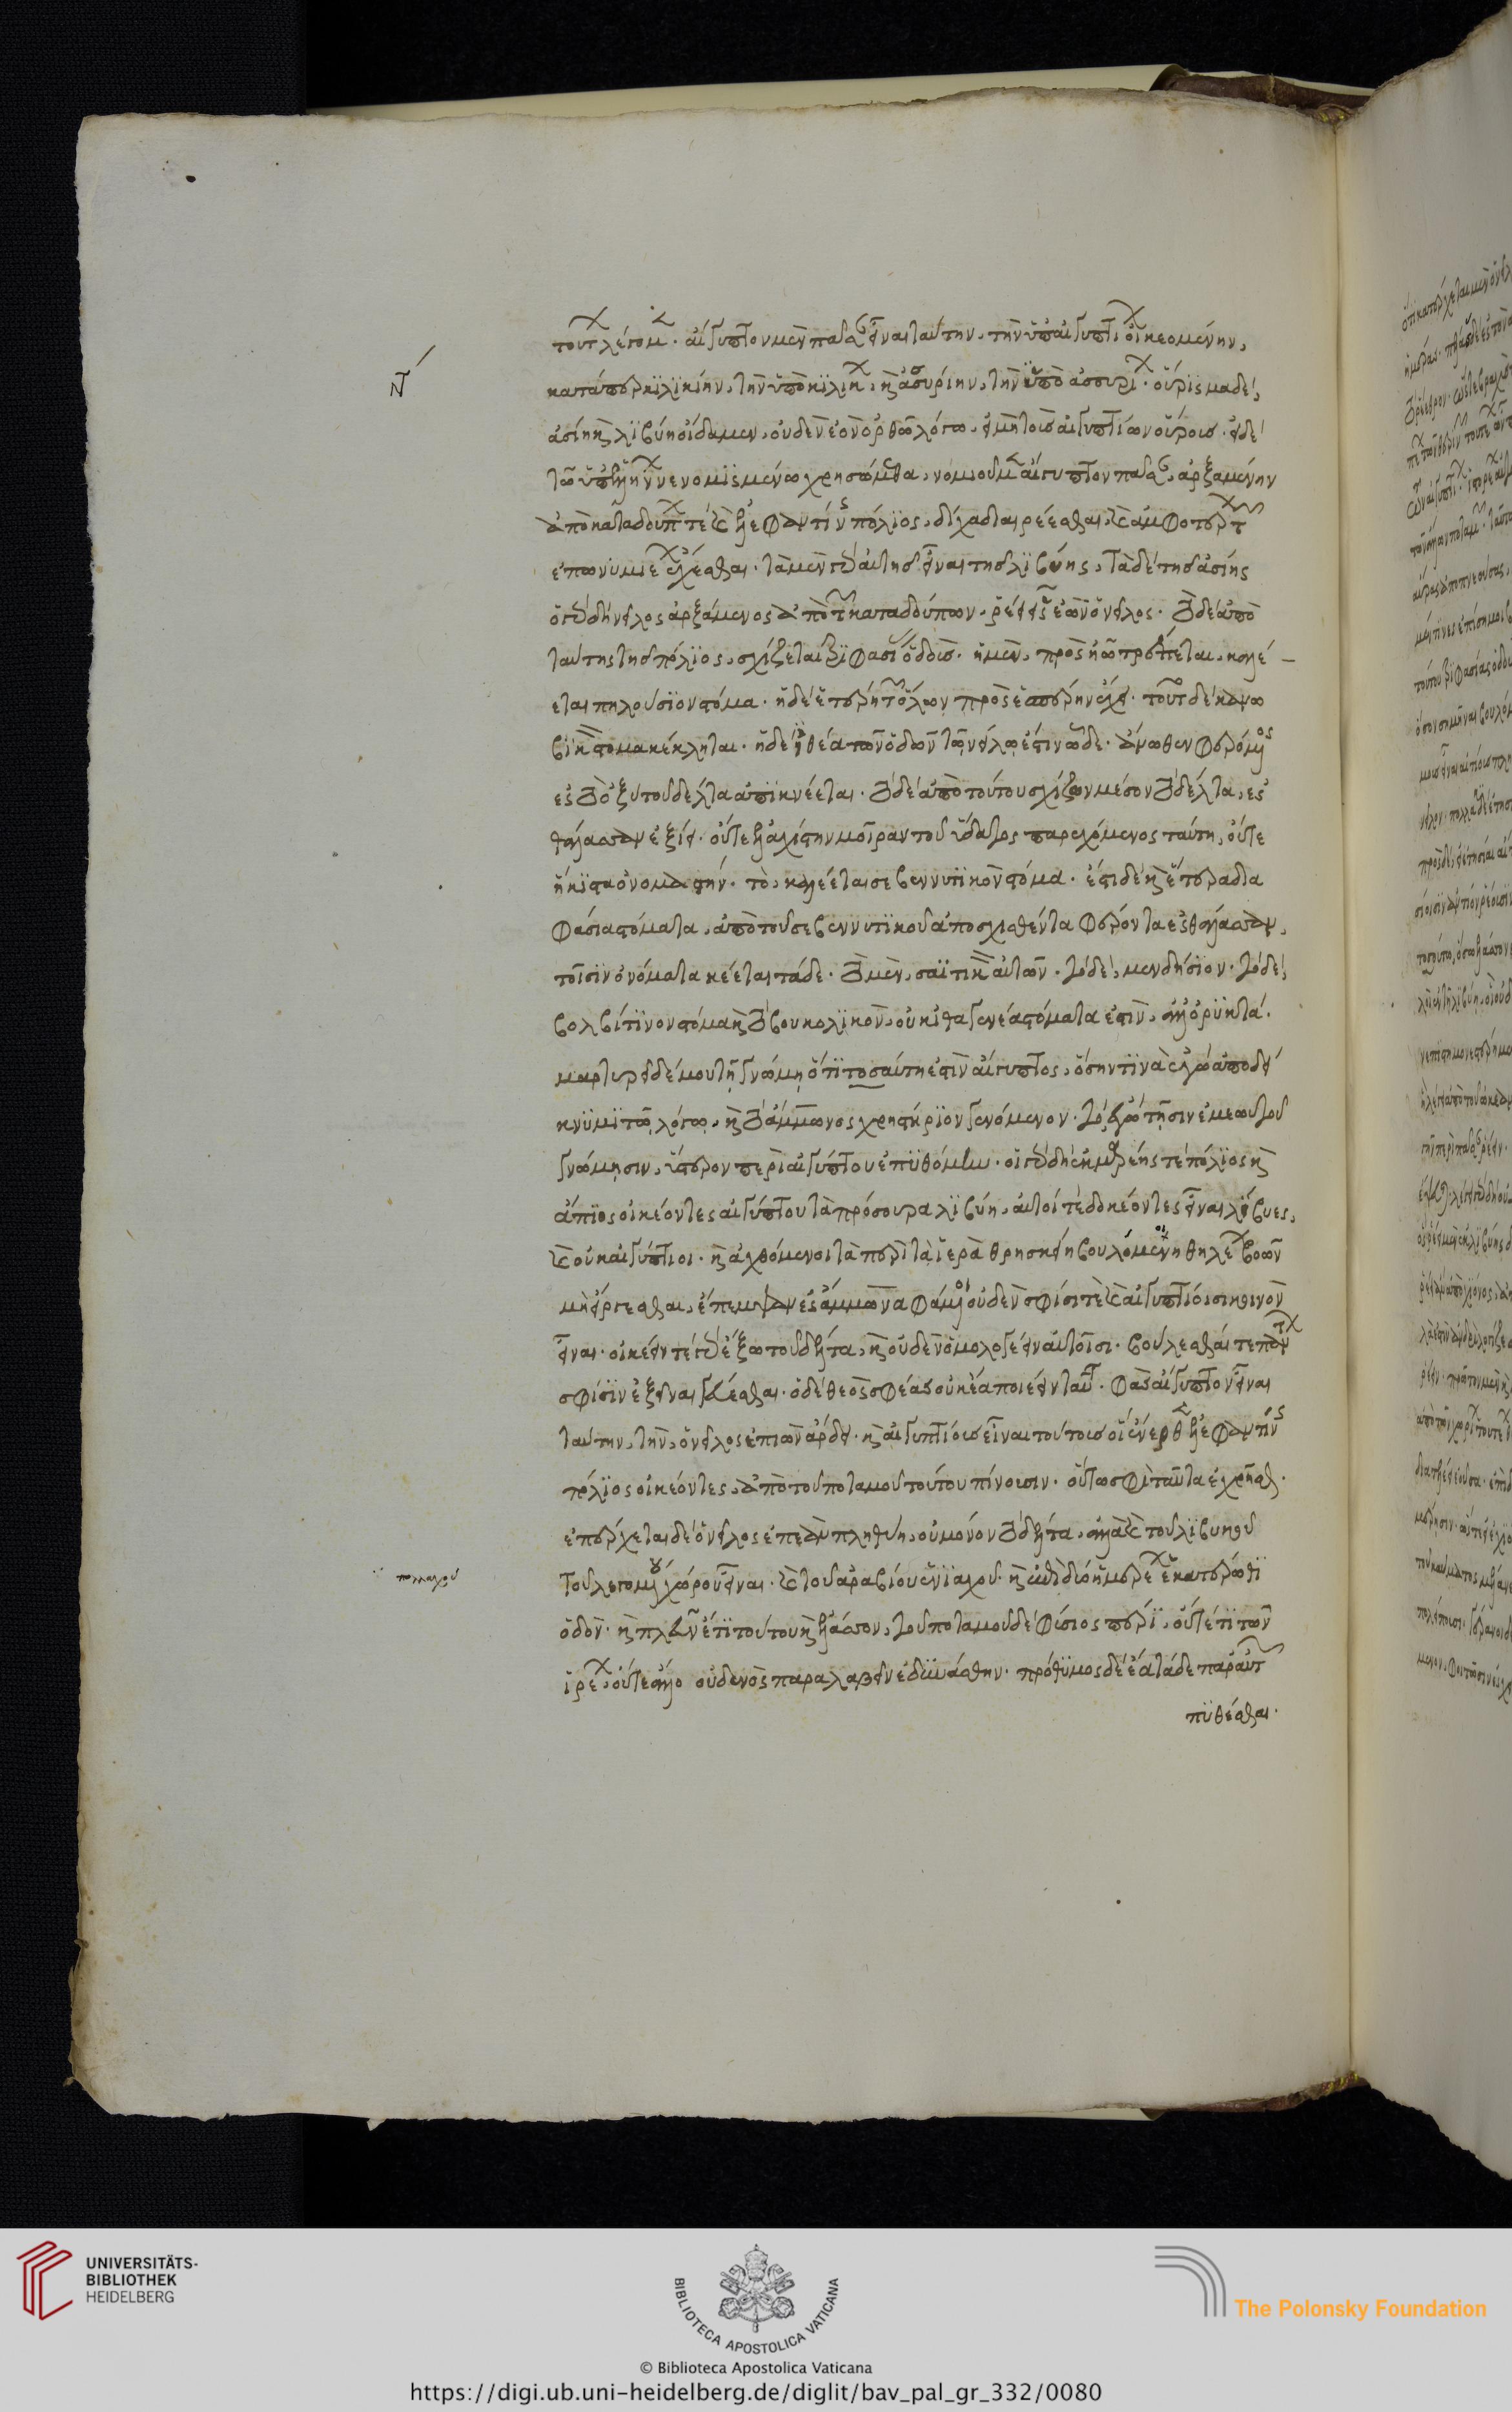 τούτων λέγομεν. αἴγυπτον μὲν πᾶσαν εἶναι ταύτην, τὴν ὑπ' αἰγυπτίων οἰκεομένην,
Ν
κατάπερ κιλικίην, τὴν ὑπὸ κιλίκων, καὶ ἀσσυρίην, τὴν ὑπὸ ἀσσυρίων. οὔρισμα δὲ,
ἀσίη καὶ λιβύη οἴδαμεν, οὐδὲν ἐὸν ὀρθῶ λόγω, εἰ μὴ τοῖς αἰγυπτίων οὔροις. εἰ δὲ
τῶ ὑπ' ἑλλήνων νενομισμένω χρησώμεθα, νομιοῦμεν αἴγυπτον πᾶσαν, ἀρξαμένην
ἀπὸ καταδούπων τὲ καὶ ἐλεφαντίνης πόλιος, δίχα διαιρέεσθαι, καὶ ἀμφοτερέων τῶν
ἐπωνυμιέων ἔχεσθαι. τὰ μὲν γὰρ αὐτῆς εἶναι τῆς λιβύης, τὰ δὲ τῆς ἀσίης
ὁ γὰρ δὴ νεῖλος ἀρξάμενος ἀπὸ τῶν καταδούπων, ῥέει ἐς ἐὼν ὁ νεῖλος. τὸ δὲ ἀπὸ
ταύτης τῆς πόλιος, σχίζεται τριφασίας ὁδούς. ἡ μὲν, πρὸς ἠῶ τρέπεται, καλέ-
εται πηλούσιον στόμα. ἡ δὲ ἑτέρη τῶν ὁδῶν πρὸς ἑσπέρην ἔχει. τοῦτο δὲ κανω
βικὸν στόμα κέκληται. ἡ δὲ ἰθέα τῶν ὁδῶν τῶ νείλω ἐστὶν ὧδε. ἄνωθεν φερόμενος
ἐς τὸ ὀξὺ τοῦ δέλτα ἀπικνέεται. τὸ δὲ ἀπὸ τούτου σχίζων μέσον τὸ δέλτα, ἐς
θάλασσαν ἐξίει. οὔτε ἐλαχίστην μοῖραν τοῦ ὕδατος παρεχόμενος ταύτη, οὔτε
ἥκιστα ὀνομαστήν. τὸ, καλέεται σεβεννυτικὸν στόμα. ἔστι δὲ καὶ ἕτερα δια
φάσια στόματα, ἀπὸ τοῦ σεβεννυτικοῦ ἀποσχισθέντα φέροντα ἐς θάλασσαν,
τοῖσιν ὀνόματα κέεται τάδε. τὸ μὲν, σαϊτικὸν αὐτῶν. τὸ δὲ, μενδήσιον. τὸ δὲ,
βολβίτινον στόμα καὶ τὸ βουκολικὸν, οὐκ ἰθαγενέα στόματα ἐστὶν, ἀλλ' ὀρυκτά.
μαρτυρεῖ δέ μου τῆ γνώμη ὅτι τοσαύτη ἐστὶν αἴγυπτος, ὅσην τινὰ ἐγὼ ἀποδεί
κνυμι τῶ λόγω, καὶ τὸ ἄμμωνος χρηστήριον γενόμενον. τὸ ἐγὼ τῆσιν ἐμεωυτοῦ
γνώμησιν, ὕστερον περὶ αἰγύπτου ἐπυθόμην. οἱ γὰρ δὴ ἐκ μαρέης τὲ πόλιος καὶ
ἄπιος οἰκέοντες αἰγύπτου τὰ πρόσουρα λιβύη, αὐτοί τε δοκέοντες εἶναι λίβυες,
καὶ οὐκ αἰγύπτιοι. καὶ ἀχθόμενοι τὰ περὶ τὰ ἱερὰ θρησκείη βουλόμενοι θηλέων βοῶν
μὴ ἔργεσθαι, ἔπεμψαν ἐς ἄμμωνα φάμενοι οὐδὲν σφίσι τὲ καὶ αἰγυπτίοισι κοινὸν
εἶναι. οἰκέειν τὲ γὰρ ἔξω τοῦ δέλτα, καὶ οὐδὲν ὁμολογέειν αὐτοῖσι. βούλεσθαί τε πάντων
σφίσιν ἐξεῖναι γεύεσθαι. ὁ δὲ θεὸς σφέας οὐκ ἔα ποιέειν ταῦτα. φὰς αἴγυπτον εἶναι
ταύτην, τὴν, ὁ νεῖλος ἐπιὼν ἄρδει. καὶ αἰγυπτίοις εἶναι τούτοις οἳ ἔνερθεν ἐλεφαντίνης
πόλιος οἰκέοντες, ἀπὸ τοῦ ποταμοῦ τούτου πίνουσιν. οὕτω σφι ταῦτα ἐχρήσθη.
ἐπέρχεται δὲ ὁ νεῖλος ἐπεὰν πληθύη, οὐ μόνον τὸ δέλτα, ἀλλὰ καὶ τοῦ λιβυκοῦ
πολλαχοῦ
τοῦ λεγομένου χώρου εἶναι. καὶ τοῦ ἀραβίου ἐνιαχοῦ. καὶ ἐπὶ δύο ἡμερέων ἑκατέρωθι
ὁδόν. καὶ πλεῦν ἔτι τούτου καὶ ἔλασσον, τοῦ ποταμοῦ δὲ φύσιος πέρι, οὔτέ τι τῶν
ἱρέων, οὔτε ἄλλο οὐδενὸς παραλαβεῖν ἐδυνάσθην. πρόθυμος δὲ ἔα τάδε παρ' αὐτῶν
πυθέσθαι.
UNIVERSITÄTS-
BIBLIOTHEK
HEIDELBERG
BIBLIOTECA APOSTOLICA VATICANA
The Polonsky Foundation
© Biblioteca Apostolica Vaticana
https://digi.ub.uni-heidelberg.de/diglit/bav_pal_gr_332/0080